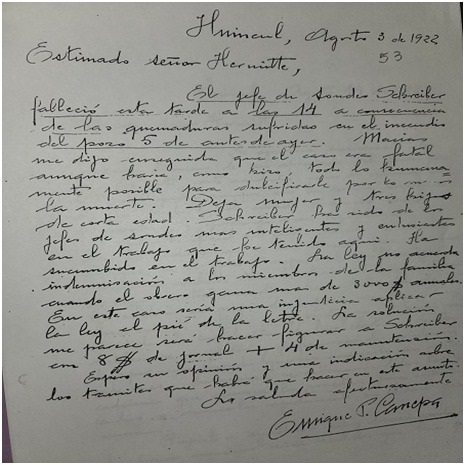 Huincul, Agosto 3 de 1922
53
Estimado señor Hermitte,
El jefe de sondeo Schreiber
falleció esta tarde a las 14 a consecuencia
de las quemaduras sufridas en el incendio
del pozo 5 de antes de ayer. Macias
me dijo enseguida que el caso era fatal
aunque haria, como hizo todo lo humana
mente posible para dulcificarle por lo menos
la muerte. Deja mujer y tres hijos
de corta edad. Schreiber ha sido de los
jefes de sondeo mas inteligentes y entusiastas
en el trabajo que he tenido aqui. Ha
sucumbido en el trabajo. La ley no acuerda
indemnización a los miembros de la familia
cuando el obrero gana mas de 3000 $ anuales.
En este caso seria una injusticia aplicar
la ley al pié de la letra. La solución
me parece será hacer figurar a Schreiber
con 8 $ de jornal + 4 de
Espero su opinión y una indicación sobre
los tramites que habrá que hacer en este asunto.
Lo saluda afectuosamente
Enrique P. Canepa